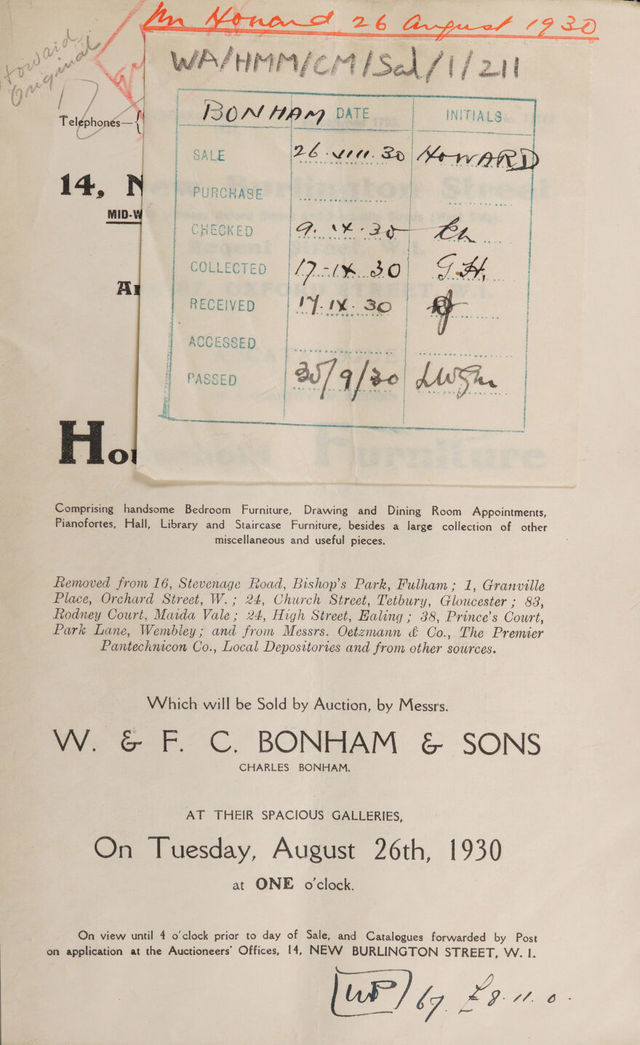 Mr Howard 26 August 1930
Howard
Original
WA/HMM/CM/Sal/1/211
Telephones—{
BONHAM DATE INITIALS
SALE 26.VIII.30 HOWARD
PURCHASE
CHECKED 9.IX.30
COLLECTED 17-IX.30 G.H.
RECEIVED 17.IX.30
ACCESSED
PASSED 30/9/30
14, N
MID-W
Ar
Hou
Furniture
Comprising handsome Bedroom Furniture, Drawing and Dining Room Appointments,
Pianofortes, Hall, Library and Staircase Furniture, besides a large collection of other
miscellaneous and useful pieces.
Removed from 16, Stevenage Road, Bishop's Park, Fulham; 1, Granville
Place, Orchard Street, W.; 24, Church Street, Tetbury, Gloucester; 83,
Rodney Court, Maida Vale; 24, High Street, Ealing; 38, Prince's Court,
Park Lane, Wembley; and from Messrs. Oetzmann & Co., The Premier
Pantechnicon Co., Local Depositories and from other sources.
Which will be Sold by Auction, by Messrs.
W. & F. C. BONHAM & SONS
CHARLES BONHAM.
AT THEIR SPACIOUS GALLERIES,
On Tuesday, August 26th, 1930
at ONE o'clock.
On view until 4 o'clock prior to day of Sale, and Catalogues forwarded by Post
on application at the Auctioneers' Offices, 14, NEW BURLINGTON STREET, W. 1.
WP 67. £8.11.0.